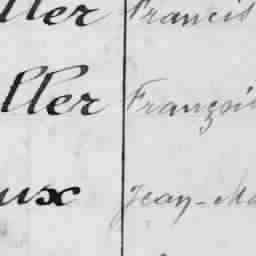 ller Francis
ller Françoi
ux Jean-Ma